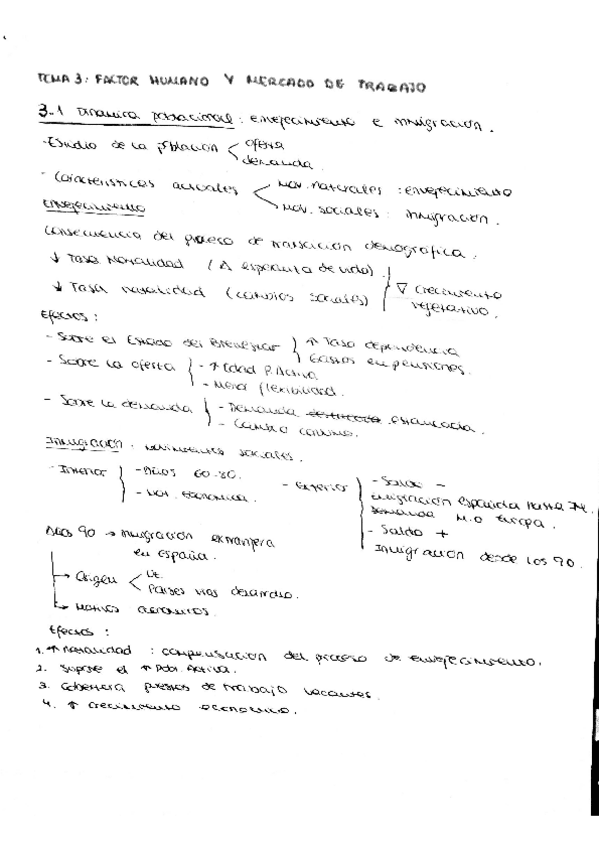 TEMA 3: FACTOR HUMANO Y MERCADO DE TRABAJO
3.1 Dinámica poblacional: envejecimiento e inmigración.
- Estudio de la población < oferta
demanda.
- Características actuales < Mov. naturales: envejecimiento
Mov. sociales: inmigración.
Envejecimiento
Consecuencia del proceso de transición demográfica.
↓ Tasa Mortalidad (Δ esperanza de vida)
↓ Tasa natalidad (cambios sociales)
∇ Crecimiento vegetativo.
Efectos:
- Sobre el Estado del Bienestar } ↑ Tasa dependencia
Gastos en pensiones.
- Sobre la oferta { - ↑ Edad P. Activa
- Menor flexibilidad.
- Sobre la demanda { - Demanda estancada.
- Cambio consumo.
Inmigración: movimientos sociales.
- Interior { - Años 60-80.
- Mot. económica.
- Exterior { - Saldo -
emigración española hasta 74.
demanda M.O Europa.
- Saldo +
Inmigración desde los 90.
Años 90 → Inmigración extranjera
en España.
→ Origen < UE.
Países vías desarrollo.
→ Motivos económicos.
Efectos:
1. ↑ natalidad: compensación del proceso de envejecimiento.
2. Supone el ↑ Pob. Activa.
3. Cobertura puestos de trabajo vacantes.
4. ↑ Crecimiento económico.